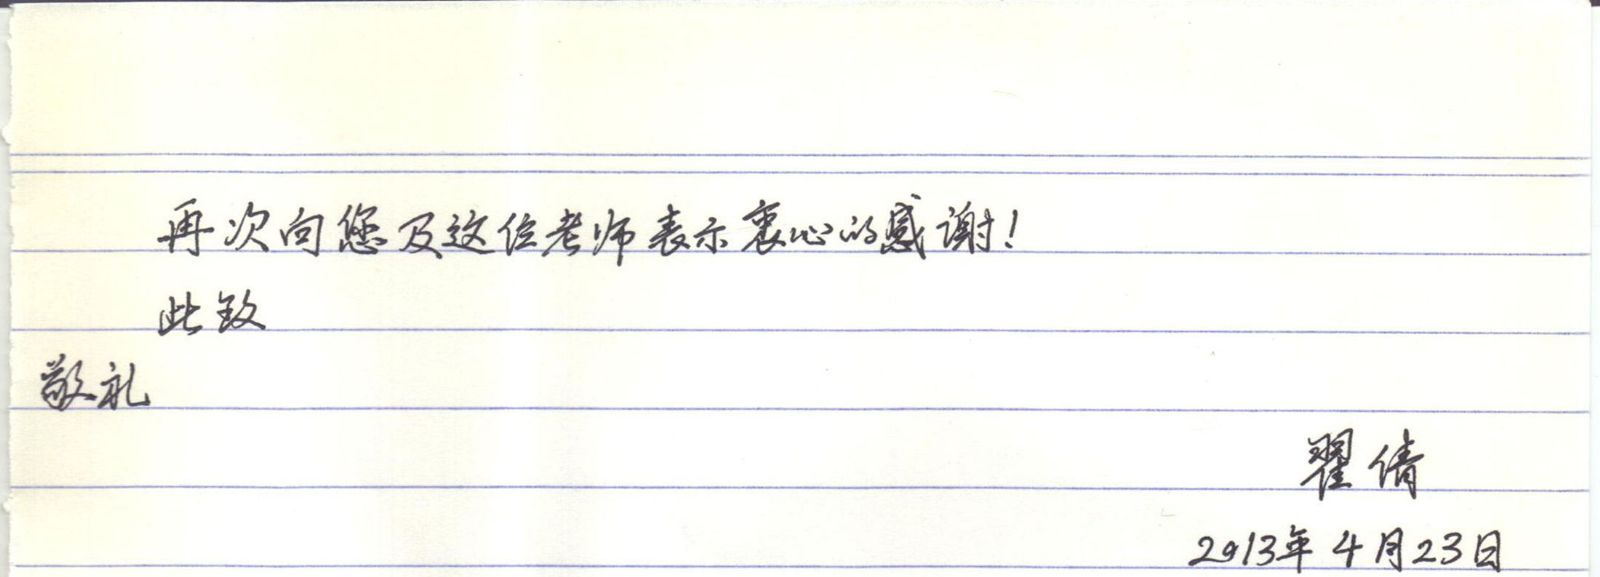 再次向您及这位老师表示衷心的感谢!
此致
敬礼
翟倩
2013年4月23日